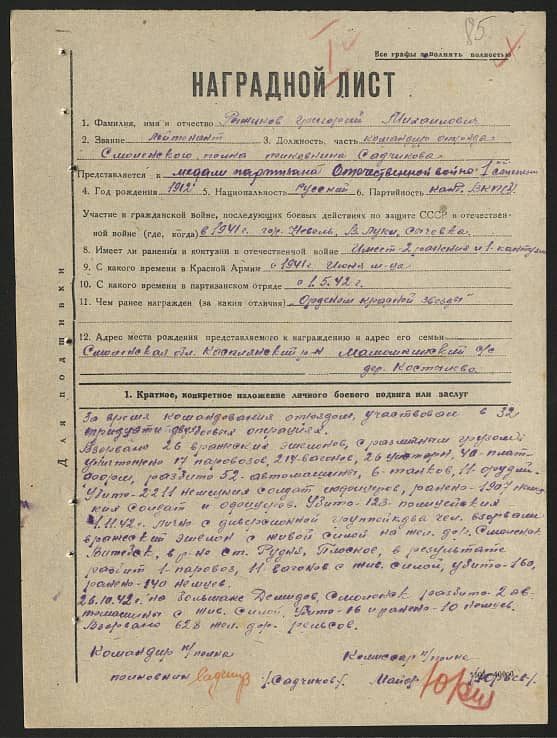 85.
Все графы заполнять полностью
НАГРАДНОЙ ЛИСТ
1. Фамилия, имя и отчество Григорий Михайлович
2. Звание лейтенант 3. Должность, часть командир отряда
Смоленского полка полковника Садчикова
Представляется к медали партизана Отечественной войны 1 степени
4. Год рождения 1912 5. Национальность русский 6. Партийность ВКП(б)
Участие в гражданской войне, последующих боевых действиях по защите СССР и отечествен-
ной войне (где, когда) в 1941 г. гор. Невель, В. Луки, Сычевка.
8. Имеет ли ранения и контузии в отечественной войне Имеет 2 ранения и 1 контузию
9. С какого времени в Красной Армии с 1941 г Июня м-ца
10. С какого времени в партизанском отряде с 1.5.42 г.
11. Чем ранее награжден (за какия отличия) Орденом красной звезды
12. Адрес места рождения представляемого к награждению и адрес его семьи
Смоленская обл. Касплянский р-н с/с
дер. Костылева
Для подшивки
1. Краткое, конкретное изложение личного боевого подвига или заслуг
За время командования отрядом, участвовал в 32
тридцати двух боевых операциях.
Взорвано 26 вражеских эшелонов, с различным грузом
уничтожено 17 паровозов, 217 вагонов, 26 цистерн, 40 плат-
форм, разбито 52 автомашины, 6 танков, 11 орудий.
Убито 2211 немецких солдат офицеров, ранено 1907 немец
ких солдат и офицеров. Убито 123 полицейских
1.11.42 г. лично с диверсионной группой чел. взорвали
вражеский эшелон с живой силой на жел. дор. Смоленск
Витебск, в р-не ст. Рудня, Плоское, в результате
разбит 1 паровоз, 11 вагонов с жив. силой, убито 160,
ранено 140 немцев.
26.10.42 г. на большаке Демидов, Смоленск разбито 2 ав-
томашины с жив. силой. Убито 16 и ранено 10 немцев.
Взорвано 628 жел. дор. рельсов.
Командир п/полка Комиссар п/полка
полковник /Садчиков/. Майор /Юрьев/